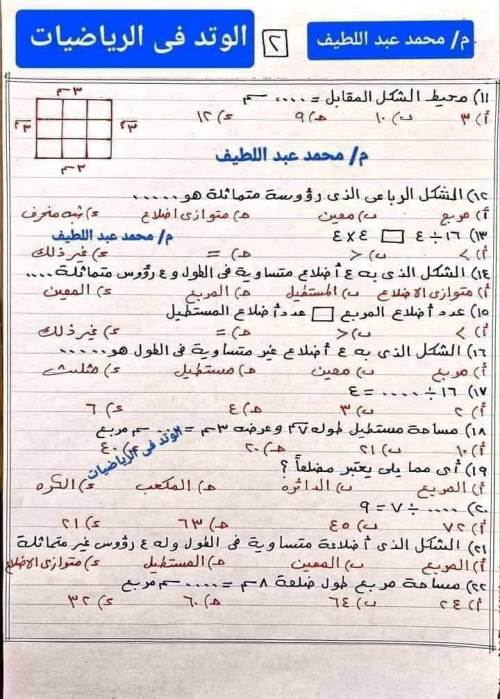 م/ محمد عبد اللطيف ٢ الوتد فى الرياضيات
١١) محيط الشكل المقابل = .... سم
أ) ٣ ب) ١٠ هـ) ٩ ء) ١٢
٣سم
٣سم ٣سم
٣سم
م/ محمد عبد اللطيف
١٢) الشكل الرباعى الذى رؤوسة متماثلة هو .....
أ) مربع ب) معين هـ) متوازى اضلاع ء) شبه منحرف
١٣) ١٦ ÷ ٤ □ ٤ × ٤ م/ محمد عبد اللطيف
أ) > ب) < هـ) = ء) غير ذلك
١٤) الشكل الذى به ٤ أضلاع متساوية فى الطول و٤ رؤوس متماثلة ....
أ) متوازى الاضلاع ب) المستطيل هـ) المربع ء) المعين
١٥) عدد أضلاع المربع □ عدد أضلاع المستطيل
أ) > ب) < هـ) = ء) غير ذلك
١٦) الشكل الذى به ٤ أضلاع غير متساوية فى الطول هو .....
أ) مربع ب) معين هـ) مستطيل ء) مثلث
١٧) ١٦ ÷ .... = ٤
أ) ٢ ب) ٣ هـ) ٤ ء) ٦
١٨) مساحة مستطيل طوله ٧سم وعرضه ٣سم = .... سم مربع
أ) ١٠ ب) ٢١ هـ) ٢٠ ء) ٤٠
الوتد فى الرياضيات
١٩) أى مما يلى يعتبر مضلعاً ؟
أ) المربع ب) الدائره هـ) المكعب ء) الكره
٢٠) .... ÷ ٧ = ٩
أ) ٧٢ ب) ٤٥ هـ) ٦٣ ء) ٢١
٢١) الشكل الذى أضلاعة متساوية فى الطول وله ٤ رؤوس غير متماثلة
أ) المربع ب) المعين هـ) المستطيل ء) متوازى الاضلاع
٢٢) مساحة مربع طول ضلعة ٨سم = .... سم مربع
أ) ٢٤ ب) ٦٤ هـ) ٦٠ ء) ٣٢